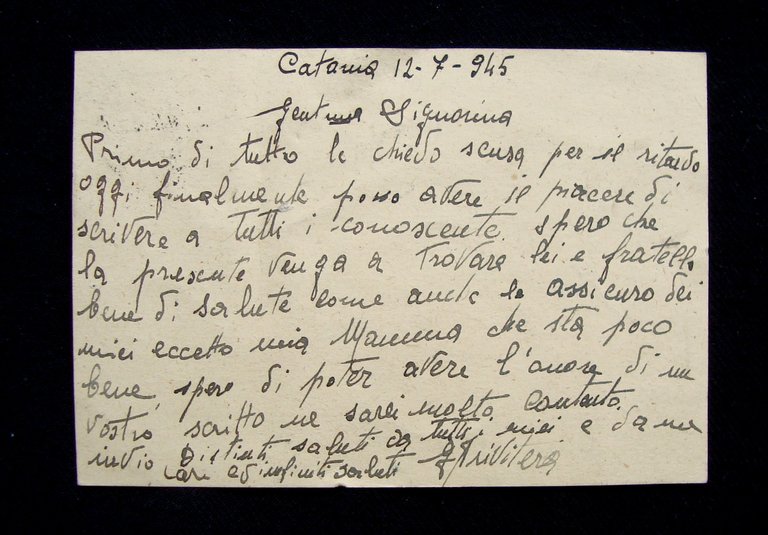 Catania 12-7-945
Gent.ma Signorina
Primo di tutto le chiedo scusa per il ritardo
oggi finalmente posso avere il piacere di
scrivere a tutti i conoscente, spero che
la presente venga a trovare lei e fratello
bene di salute come anche le assicuro dei
miei eccetto mia Mamma che sta poco
bene, spero di poter avere l'onore di un
vostro scritto ne sarei molto contento
invio Distinti saluti da tutti i miei e da me
cari ed infiniti saluti Privitera